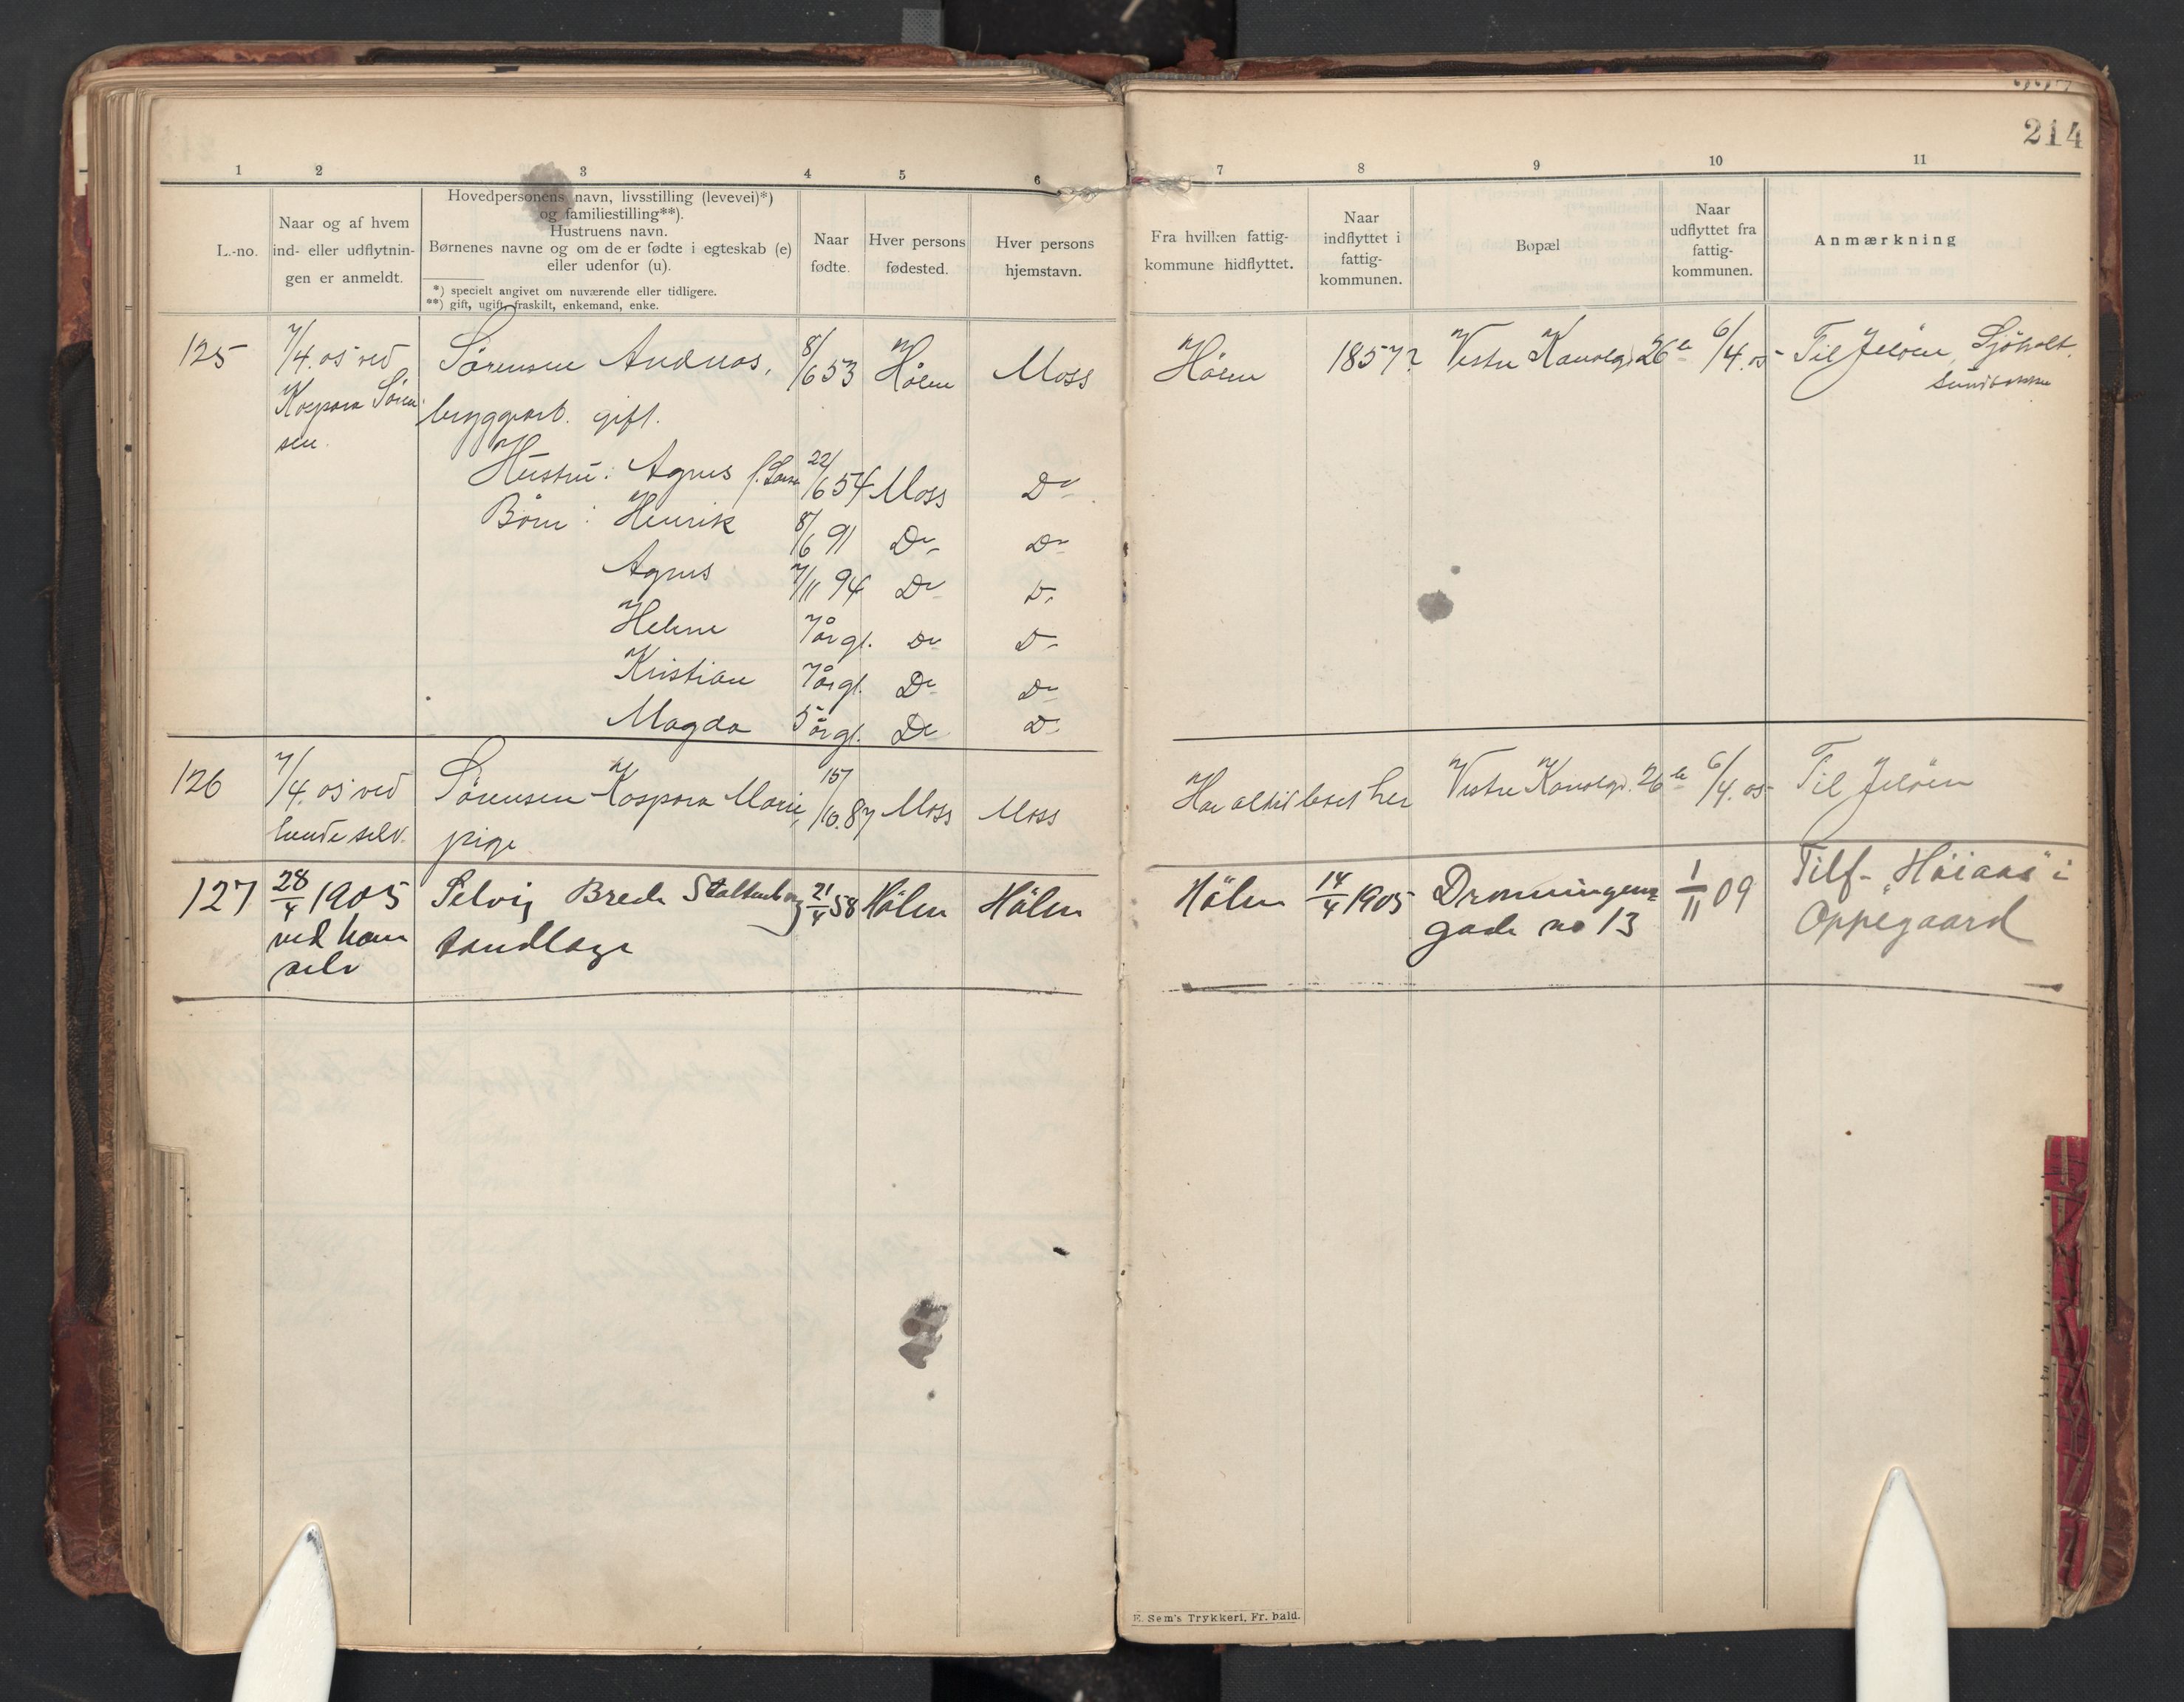 214
1 2 3 4 5 6 7 8 9 10 11
L.-no.
Naar og af hvem
ind- eller udflytnin-
gen er anmeldt.
Hovedpersonens navn, livsstilling (levevei)*)
og familiestilling**).
Hustruens navn.
Børnenes navne og om de er fødte i egteskab (e)
eller udenfor (u).
*) specielt angivet om nuværende eller tidligere.
**) gift, ugift, fraskilt, enkemand, enke.
Naar
fødte.
Hver persons
fødested.
Hver persons
hjemstavn.
Fra hvilken fattig-
kommune hidflyttet.
Naar
indflyttet i
fattig-
kommunen.
Bopæl
Naar
udflyttet fra
fattig-
kommunen.
Anmærkning
125 7/4. 05 ved Sørensen Andreas, 8/6 53 Hølen Moss Hølen 1857? Vestre Kanalgd. 26 b 6/4. 05 Til Jeløen, Sjöholt,
Kaspara Søren- bryggearb. gift. Sundbakken
sen.
Hustru: Agnes f. Lars. 22/6 54 Moss Do
Børn: Henrik 8/6 91 Do Do
Agnes 7/11 94 Do Do
Helene 7 år gl. Do Do
Kristian 7 år gl. Do Do
Magda 5 år gl. Do Do
126 7/4. 05 ved Sørensen Kaspara Marie, 15/10. 87 Moss Moss Har altid boet her Vestre Kanalgd. 26 b 6/4. 05 Til Jeløen
hende selv. pige
127 28/4 1905 Selvig Brede Stoltenberg 21/4 58 Hølen Hølen Hølen 14/4 1905 Dronningens= 1/11 09 Tilf- "Høiaas" i
ved ham tandlæge gade no 13 Oppegaard
selv
E. Sem's Trykkeri, Fr. hald.